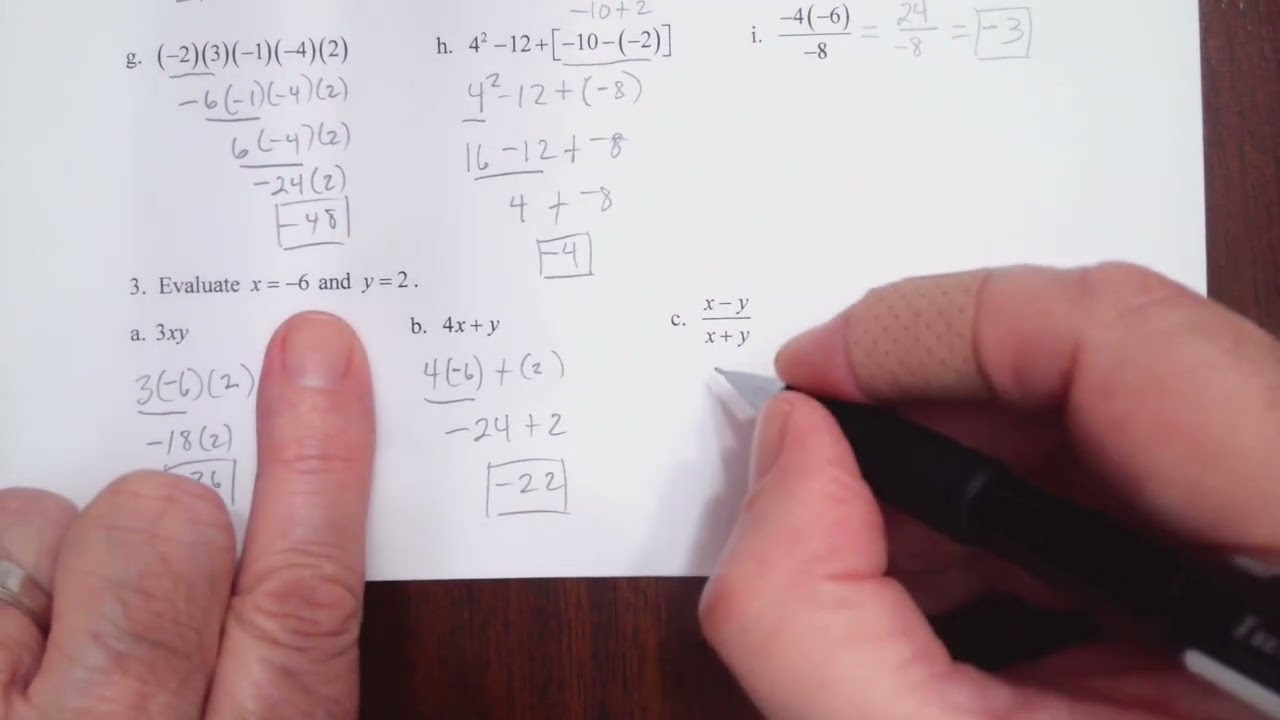 -10+2
g. (-2)(3)(-1)(-4)(2)
-6(-1)(-4)(2)
6(-4)(2)
-24(2)
-48
h. 4² -12+[-10-(-2)]
4²-12+(-8)
16-12+-8
4 + -8
-4
i. -4(-6)/-8 = 24/-8 = -3
3. Evaluate x=-6 and y=2.
a. 3xy
3(-6)(2)
-18(2)
b. 4x+y
4(-6)+(2)
-24+2
-22
c. x-y/x+y